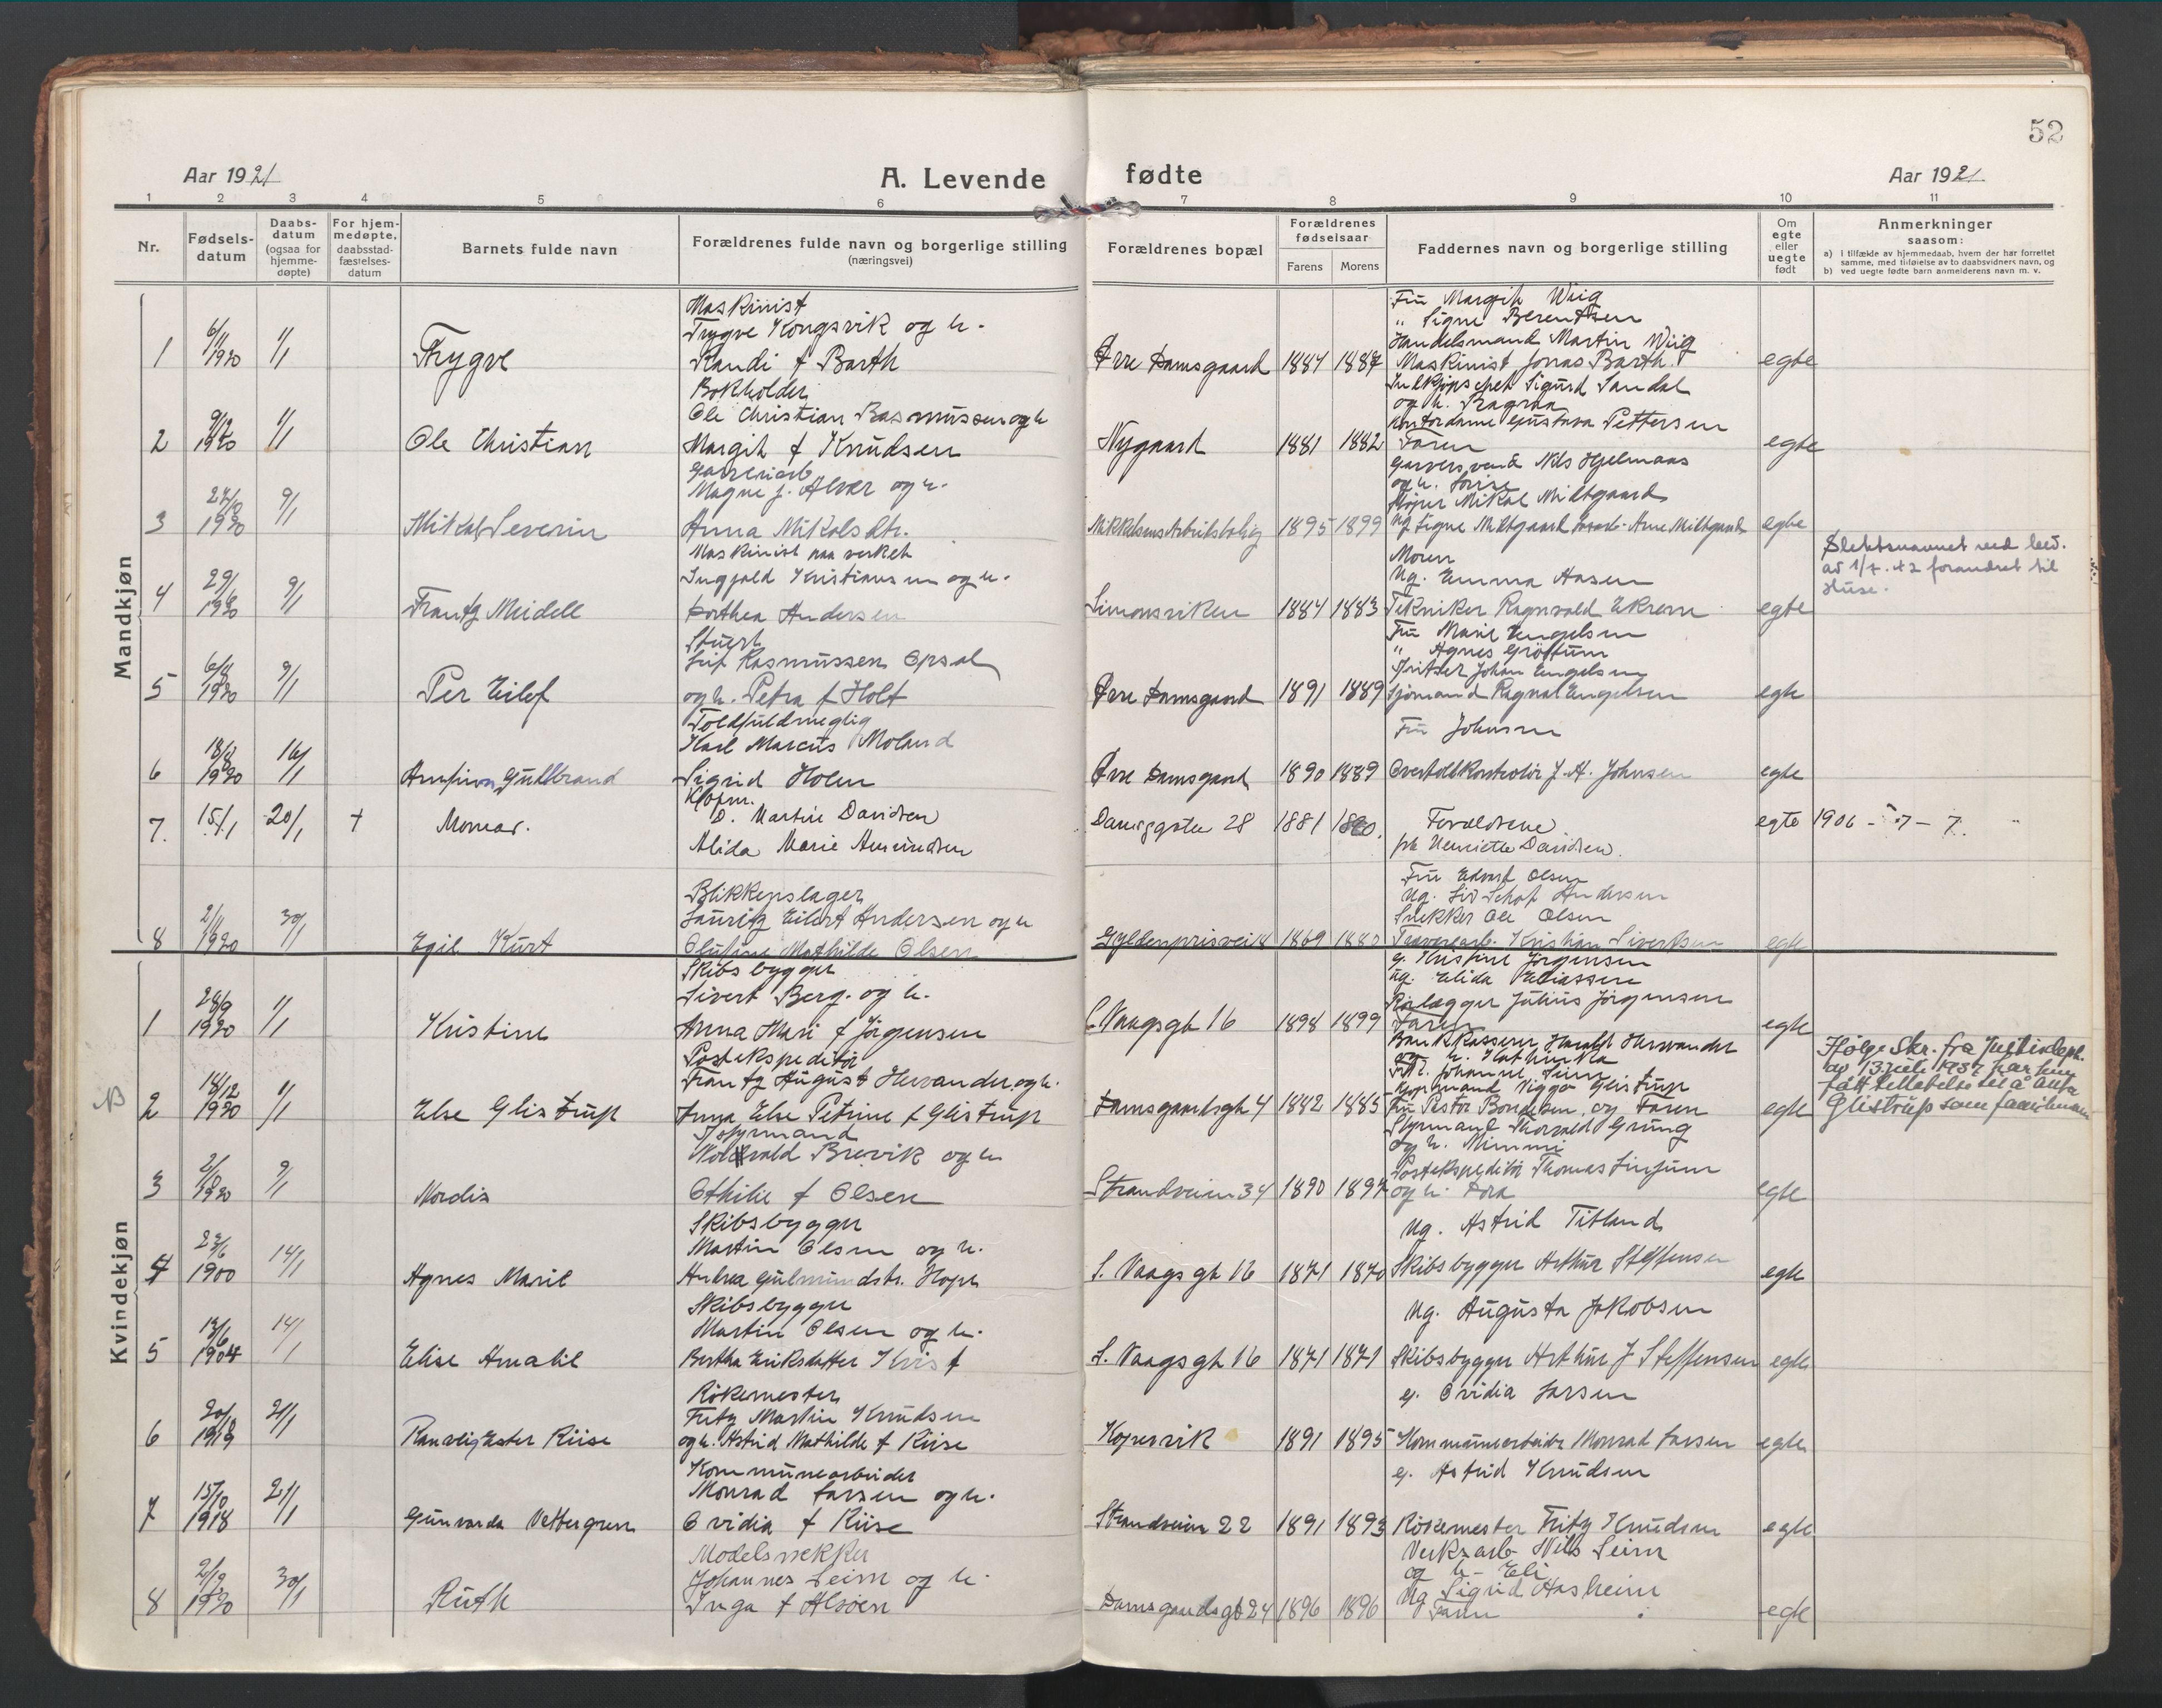 52
Aar 1921
A. Levende fødte
Aar 1921
1 2 3 4 5 6 7 8 9 10 11
Nr.
Fødsels-
datum
Daabs-
datum
(ogsaa for
hjemme-
døpte)
For hjem-
medøpte,
daabsstad-
fæstelses-
datum
Barnets fulde navn
Forældrenes fulde navn og borgerlige stilling
(næringsvei)
Forældrenes bopæl
Forældrenes
fødselsaar
Farens Morens
Faddernes navn og borgerlige stilling
Om
egte
eller
uegte
født
Anmerkninger
saasom:
a) i tilfælde av hjemmedaab, hvem der har forrettet
samme, med tilføielse av to daabsvidners navn, og
b) ved uegte fødte barn anmelderens navn m. v.
Mandkjøn
1 6/11 1920 1/1 Trygve
Maskinist
Trygve Kongsvik og h.
Randi f Barth
Øvre Damsgaard 1884 1887
Fru Margit Wiig
" Signe Berentsen
Handelsmand Martin Wiig
Maskinist Jonas Barth
egte
2 1920 1/1 Ole Christian
Bokholder
Ole Christian Rasmussen og h
Margit f Knudsen
Nygaard 1881 1882
Indkjøpschef Sigurd Sandal
og h. Ragna
Kontordame Gustava Pettersen
Faren
egte
3 1920 9/1 Mikal Severin
Garveriarb
Magne J. Alver og h.
Anna Mikalsdtr.
Mikkelsens Arbeiderbolig 1895 1899
Garversvend Nils Hjelmaas
og h.
Mikal Mildtgaard
Ug Signe Mildtgaard Arne Mildtgaard
egte
4 29/ 1920 9/1 Frantz Meidell
Maskinist paa verket
Ingjald Kristiansen og h.
Dorthea Andersen
Simonsviken 1884 1883
Moren
Ug. Emma Aasen
Tekniker Ragnvald Ekrem
egte
Slektsnavnet ved bev.
av 1/7.42 forandret til
Huse.
5 1920 9/1 Per Eilef
Stuert
Leif Rasmussen Opsal
og h. Petra f Holt
Øvre Damsgaard 1891 1889
Fru Marie Engelsen
" Agnes Grøttum
Johan Engelsen
Sjømand Ragnar Engelsen
egte
6 1920 16/1 Gulbrand
Toldfuldmegtig
Karl Marcus Moland
Sigrid Holm
Øvre Damsgaard 1890 1889
Fru Johnsen
Overtoldkontrolør J. A. Johnsen
egte
7. 15/1 20/1 + Monrar.
Kjøpm.
D. Martin Davidsen
Alida Marie Amundsen
Damsggaten 28 1881
Forældrene
frk Henriette Davidsen
egte
8 2/11 1920 30/1 Egil Kurt
Blikkenslager
Lauritz Eilert Andersen og h
Olufine Mathilde Olsen
Gyldenprisvei 1869 1880
Fru Edvart Olsen
Ug. Andersen
Snekker Ole Olsen
Kristian Sivertsen
egte
Kvindekjøn
1 28/9 1920 1/1 Kristine
Skibsbygger
Sivert Berg. og h.
Anna Mari f Jørgensen
S. Vaagsgt 16 1898 1899
g. Kristine Jørgensen
ug. Elida Eliassen
Rørlægger Julius Jørgensen
Faren
egte
2 18/12 1920 1/1 Else Glistrup
Postekspeditør
Frantz August Hervander og h.
Anna Else Petrine f Glistrup
Damsgaardsgt 4 1882 1885
Bankkasserer Harald Hervander
og h. Kathinka
Kjøpmand Viggo Glistrup
Fru Pastor Bondesen og Faren
egte
Ifølge Skr. fra Justisdept.
av 13 juli 1937 har hun
fått tillatelse til å anta
Glistrup som familienavn
3 1920 9/1 Nordis
Styrmand
Brevik og h
Othilie f Olsen
Strandveien 34 1890 1897
Styrmand Thorvald Grung
og h. Mimmi
Postekspeditør Thomas
og h. Dora
egte
4 23/6 1900 14/1 Agnes Marie
Skibsbygger
Martin Olsen og h.
Andrea Gulmundsdtr. Hope
S. Vaags gt 16 1871 1870
Ug. Astrid Titland
Skibsbygger Arthur Steffensen
egte
5 13/6 1904 14/1 Elise Amalie
Skibsbygger
Martin Olsen og h.
Bertha Eriksdatter
S. Vaags gt 16 1871 1871
Ug. Augusta Jakobsen
Skibsbygger Arthur J Steffensen
egte
6 20/ 1919 21/1 Ranveig Ester Riise
Røkemester
Fritz Martin Knudsen
og h. Astrid Mathilde f Riise
Kopervik 1891 1895
g. Ovidia Larsen
Kommunearbeider Monrad Larsen
egte
7 15/10 1918 21/1 Gunvarda Vettergren
Kommunearbeider
Monrad Larsen og h.
Ovidia f Riise
Strandveien 22 1891 1893
g. Astrid Knudsen
Røkemester Fritz Knudsen
egte
8 1920 30/1 Ruth
Modelsnekker
Johannes Seim og h.
Inga f Alsøen
Damsgaardsgt 24 1896 1896
Verksarb Nils Seim
og h - Eli
Ug Sigrid Aasheim
Faren
egte